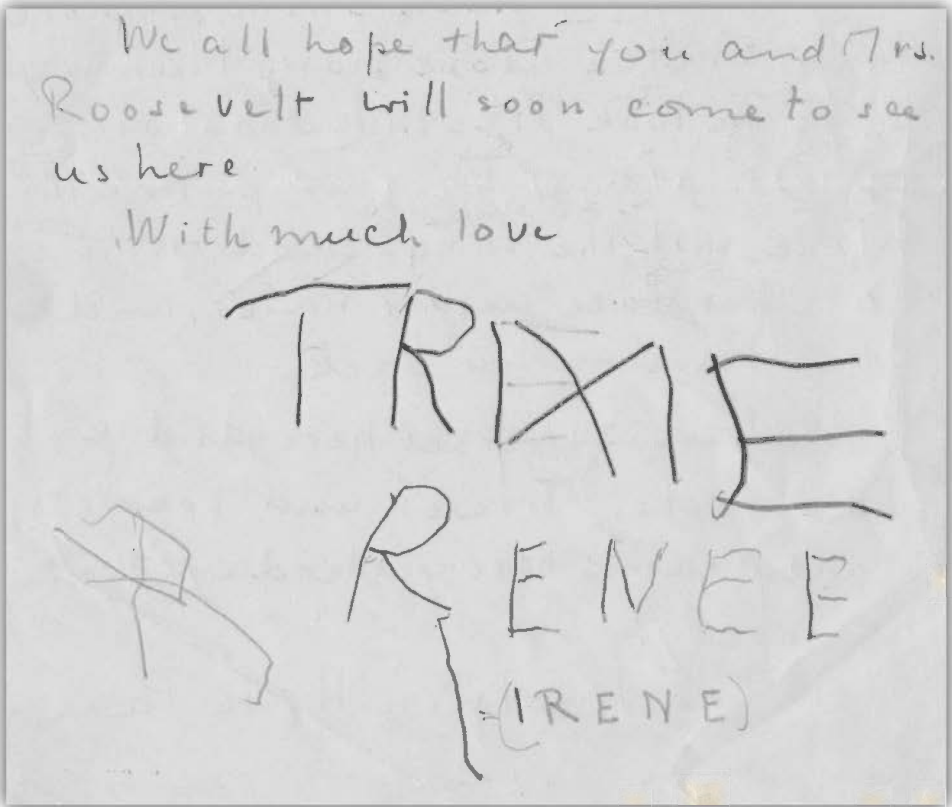 We all hope that you and Mrs.
Roosevelt will soon come to see
us here
With much love
TRIXIE
RENEE
(IRENE)